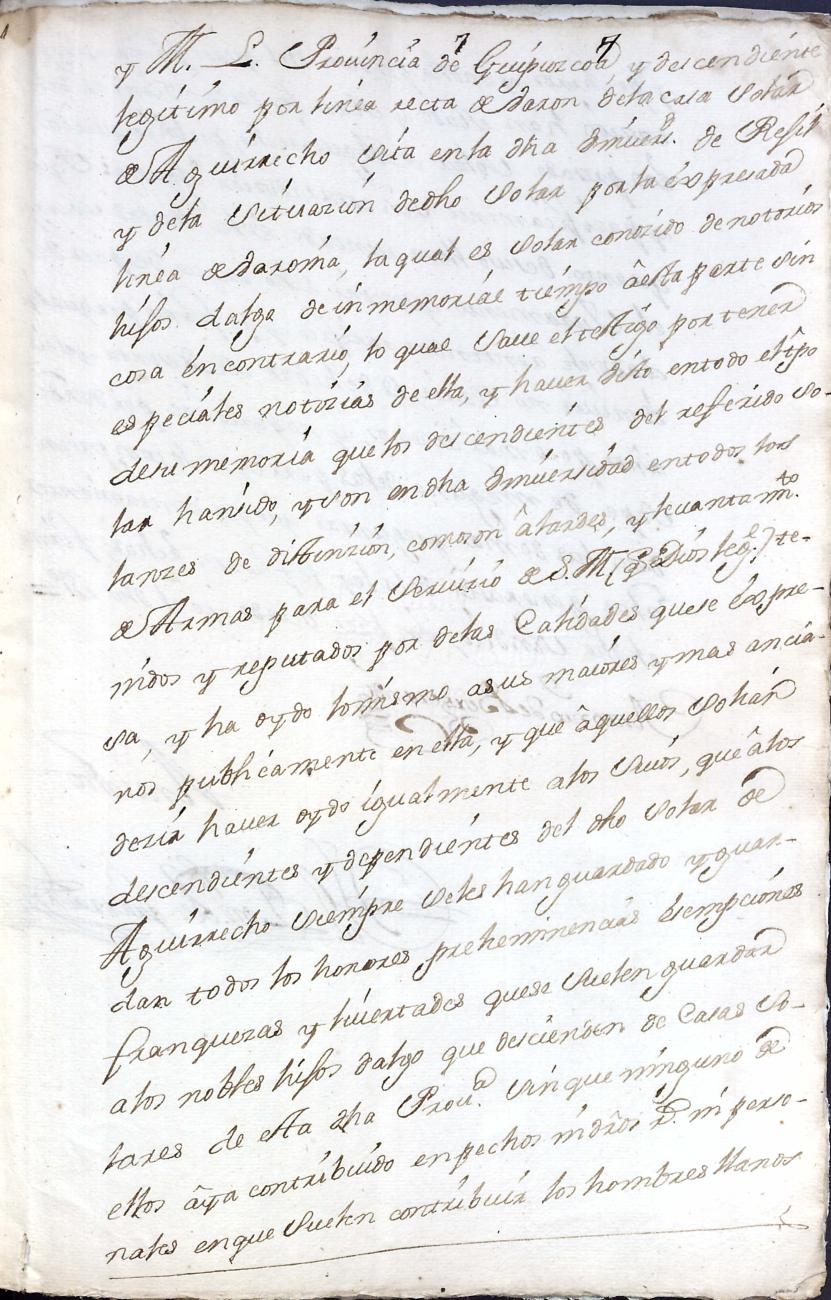 y M. L. Provincia de Guipuzcoa y descendiente
legitimo por linea recta de Baron, dela casa Solar
de Aguirrecho Sita en la dha Univers.d de Resil
y dela Situazion de dho Solar por la expresada
linea de Baronia, la qual es Solar conozido de notorios
hijos dalgo de inmemorial tiempo â esta parte sin
cosa en contrario, lo qual save el testigo por tener
especiales notozias de ella, y haver visto en todo el tpo
de su memoria que los descendientes del referido So-
lar han sido, y son en dha Universidad en todos los
lanzes de distinzion, como son âlardes, y levantam.to
de Armas para el Servizio de S. M. (q.e Dios Leg.e) te-
nidos y reputados por delas Calidades que se expre-
sa, y ha oydo lo mismo a sus maiores y mas ancia-
nos publicamente en ella, y que âquellos Solian
dezir haver oydo igualmente alos Suios, que âlos
descendientes y dependientes del dho Solar de
Aguirrecho siempre seles han guardado y guar-
dan todos los honores preheminencias esempciones
franquezas y livertades que se suelen guardar
alos nobles hijos dalgo que descienden de Casas So-
lares de esta dha Prov.a sin que ninguno de
ellos âya contribuido en pechos ni dros R.s ni perso-
nales en que suelen contribuir los hombres llanos